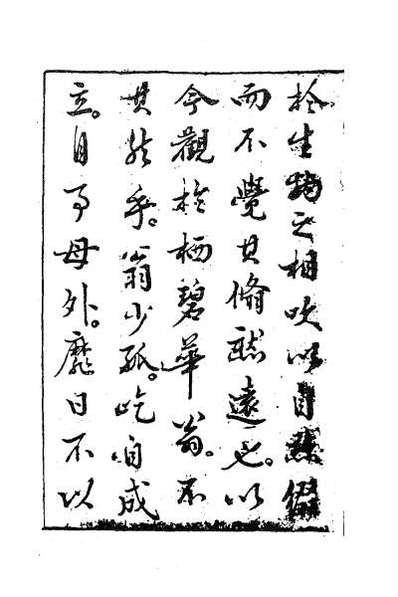 於生物之相吹以自點綴
而不覺其翛然遠也。以
今觀於栖碧華翁。不
其然乎。翁少孤。屹自成
立。自事母外。靡日不以